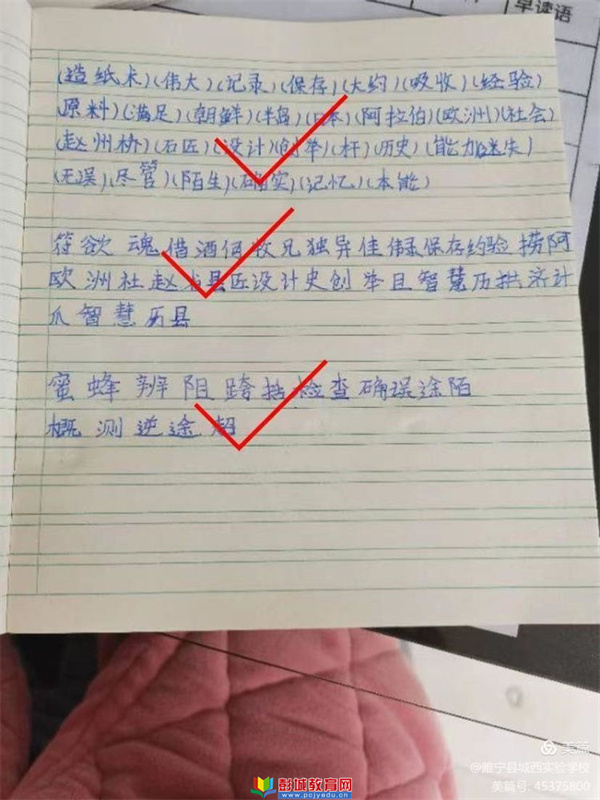 早读语
(造纸术)(伟大)(记录)(保存)(大约)(吸收)(经验)
原料)(满足)(朝鲜)(半岛)(日本)(阿拉伯)(欧洲)(社会)
(赵州桥)(石匠)(设计)(创举)(栏杆)(历史)(能力)(迷失)
(无误)(尽管)(陌生)(确实)(记忆)(本能)
符欲魂借酒何牧兄独异佳伟录保存约验捞阿
欧洲社赵县匠设计史创举且智慧历拱济计
爪智慧历县
蜜蜂辨阻跨括检查确误途陌
概测逆途超
美篇
@睢宁县城西实验学校
美篇号: 45375800
彭城教育网
www.pcjyedu.cn